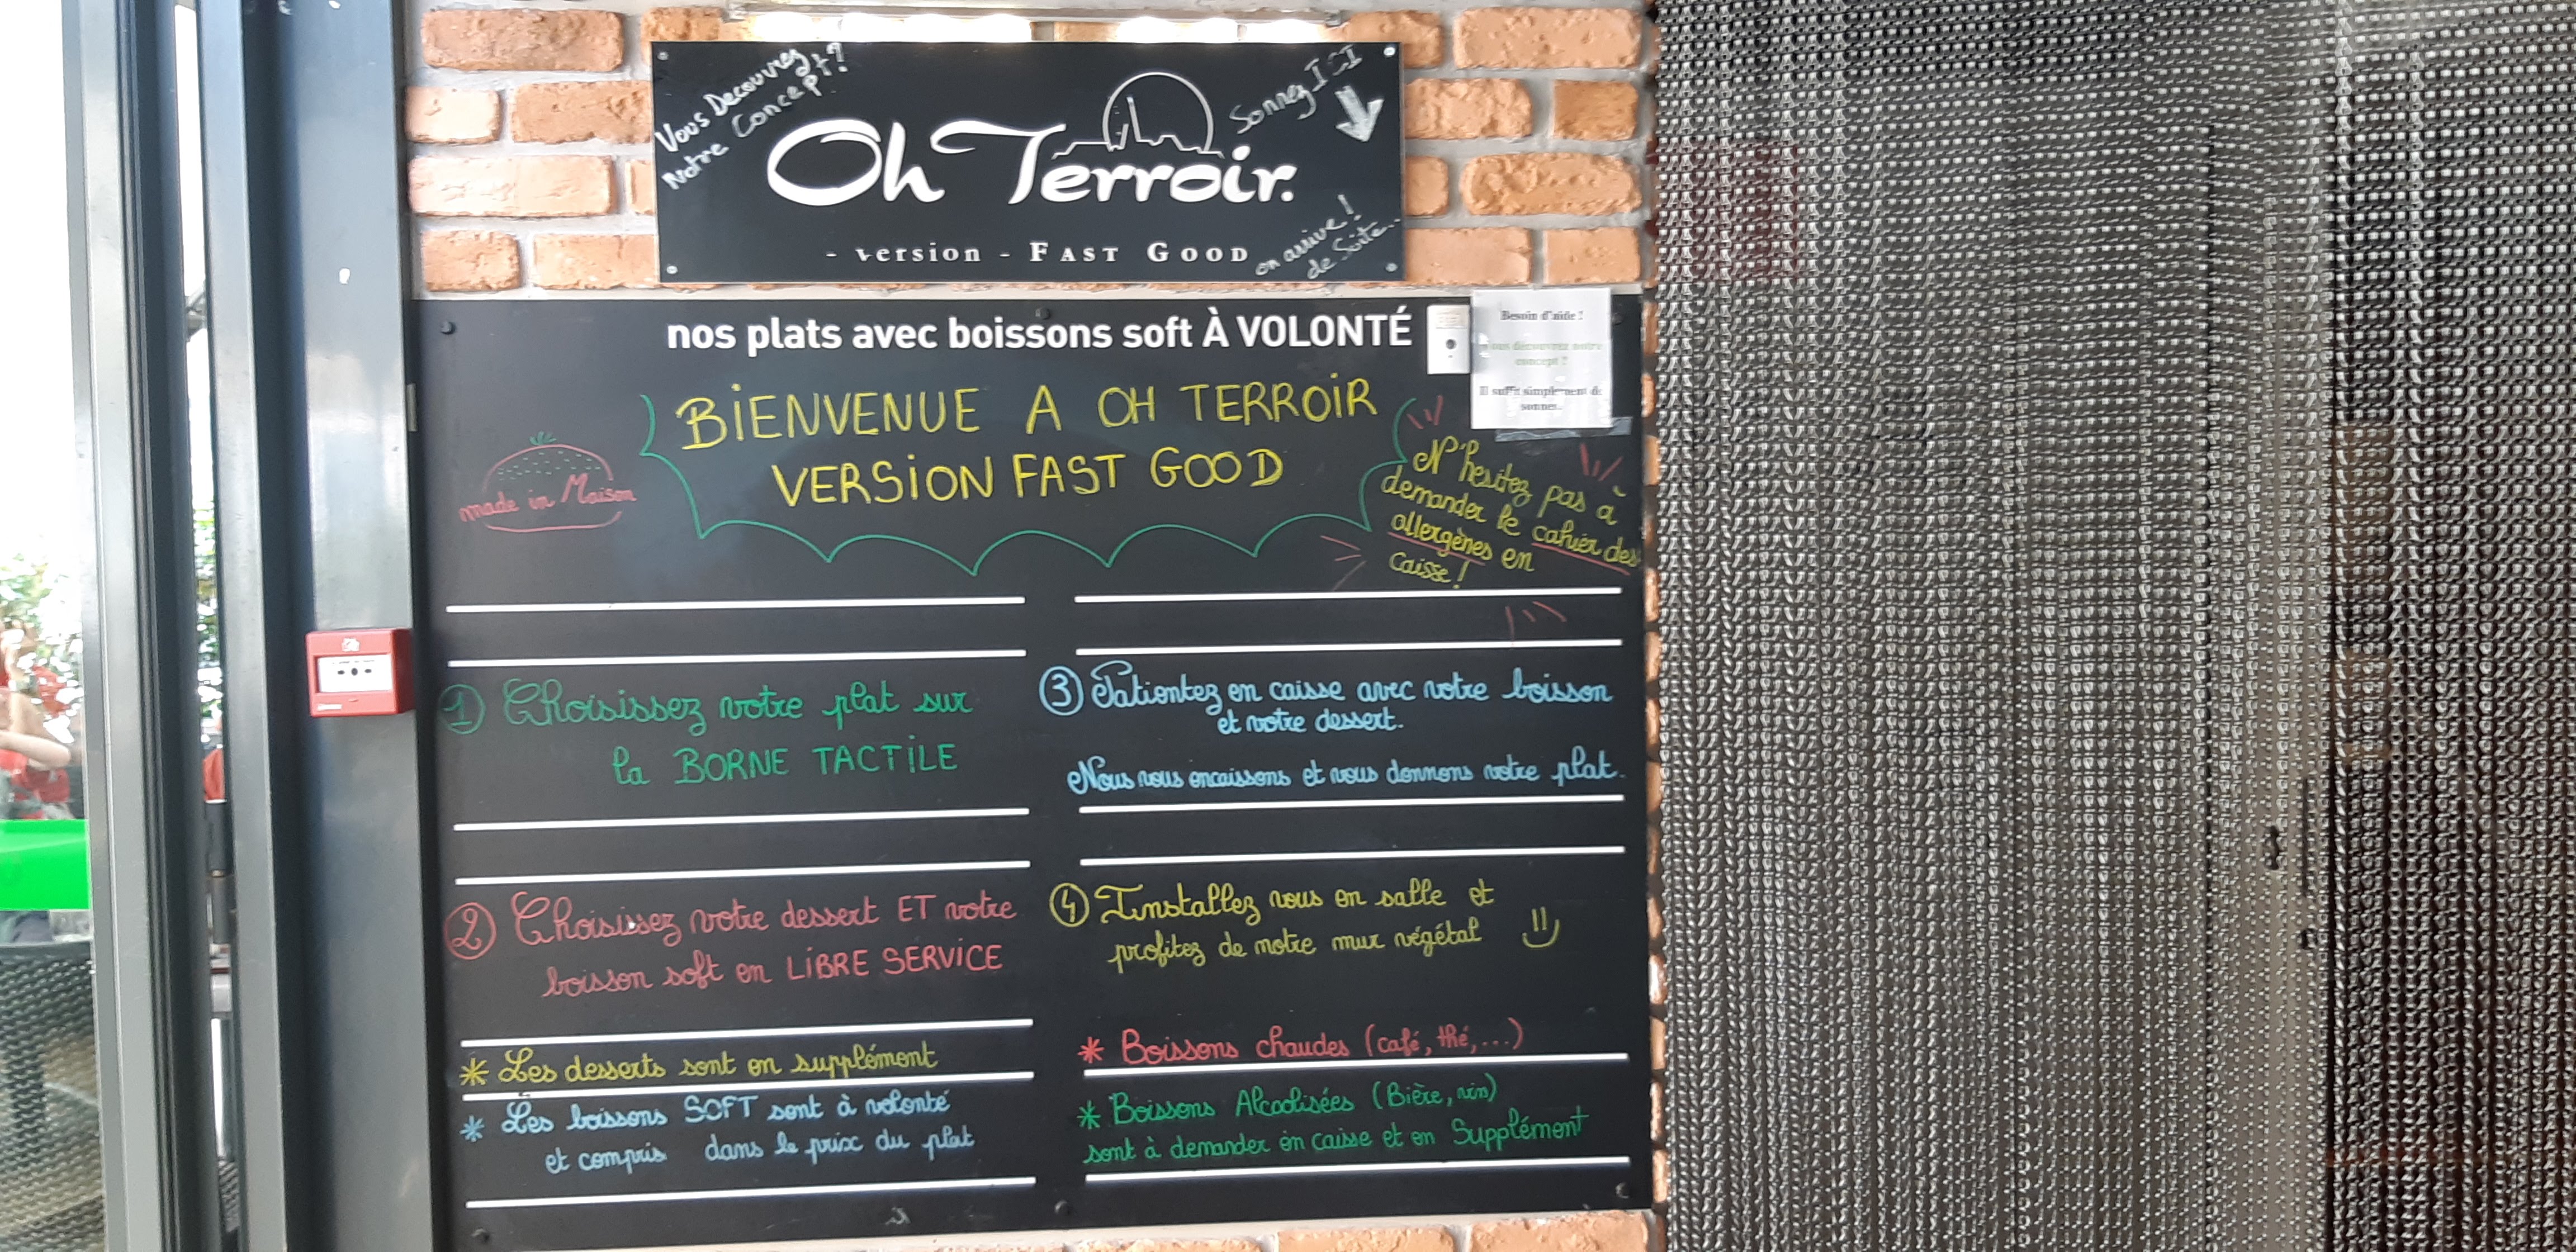 Vous Decouvrez
Notre Concept?
Sonnez ICI
Oh Terroir.
- version - FAST GOOD
on arrive !
de Suite...
nos plats avec boissons soft À VOLONTÉ
Besoin d'aide !
vous découvrez notre
concept ?
Il suffit simplement de
sonner.
BiENVENUE A OH TERROiR
VERSiON FAST GOOD
made in Maison
N'hesitez pas à
demander le cahier des
allergènes en
caisse !
1 Choisissez votre plat sur
la BORNE TACTiLE
2 Choisissez votre dessert ET votre
boisson soft en LiBRE SERVICE
* Les desserts sont en supplément
* Les boissons SOFT sont à volonté
et compris dans le prix du plat
3 Patientez en caisse avec votre boisson
et votre dessert.
Nous vous encaissons et vous donnons votre plat.
4 Installez vous en salle et
profitez de notre mur végétal
* Boissons chaudes (café, thé,...)
* Boissons Alcoolisées (Bière, vin)
sont à demander en caisse et en Supplément